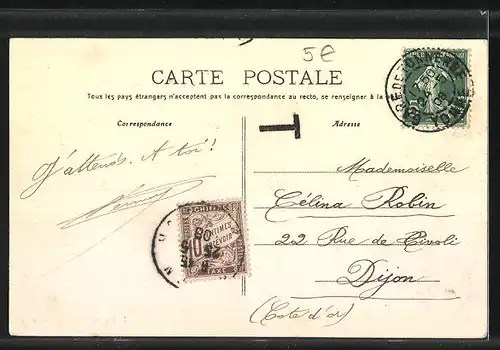 5€
CARTE POSTALE
Tous les pays étrangers n'acceptent pas la correspondance au recto, se renseigner à la
Correspondance
Adresse
T
J'attends. A toi!
Mademoiselle
Célina Robin
22 Rue de Rivoli
Dijon
(Cote d'or)
10
CENTIMES
TAXE
YONNE